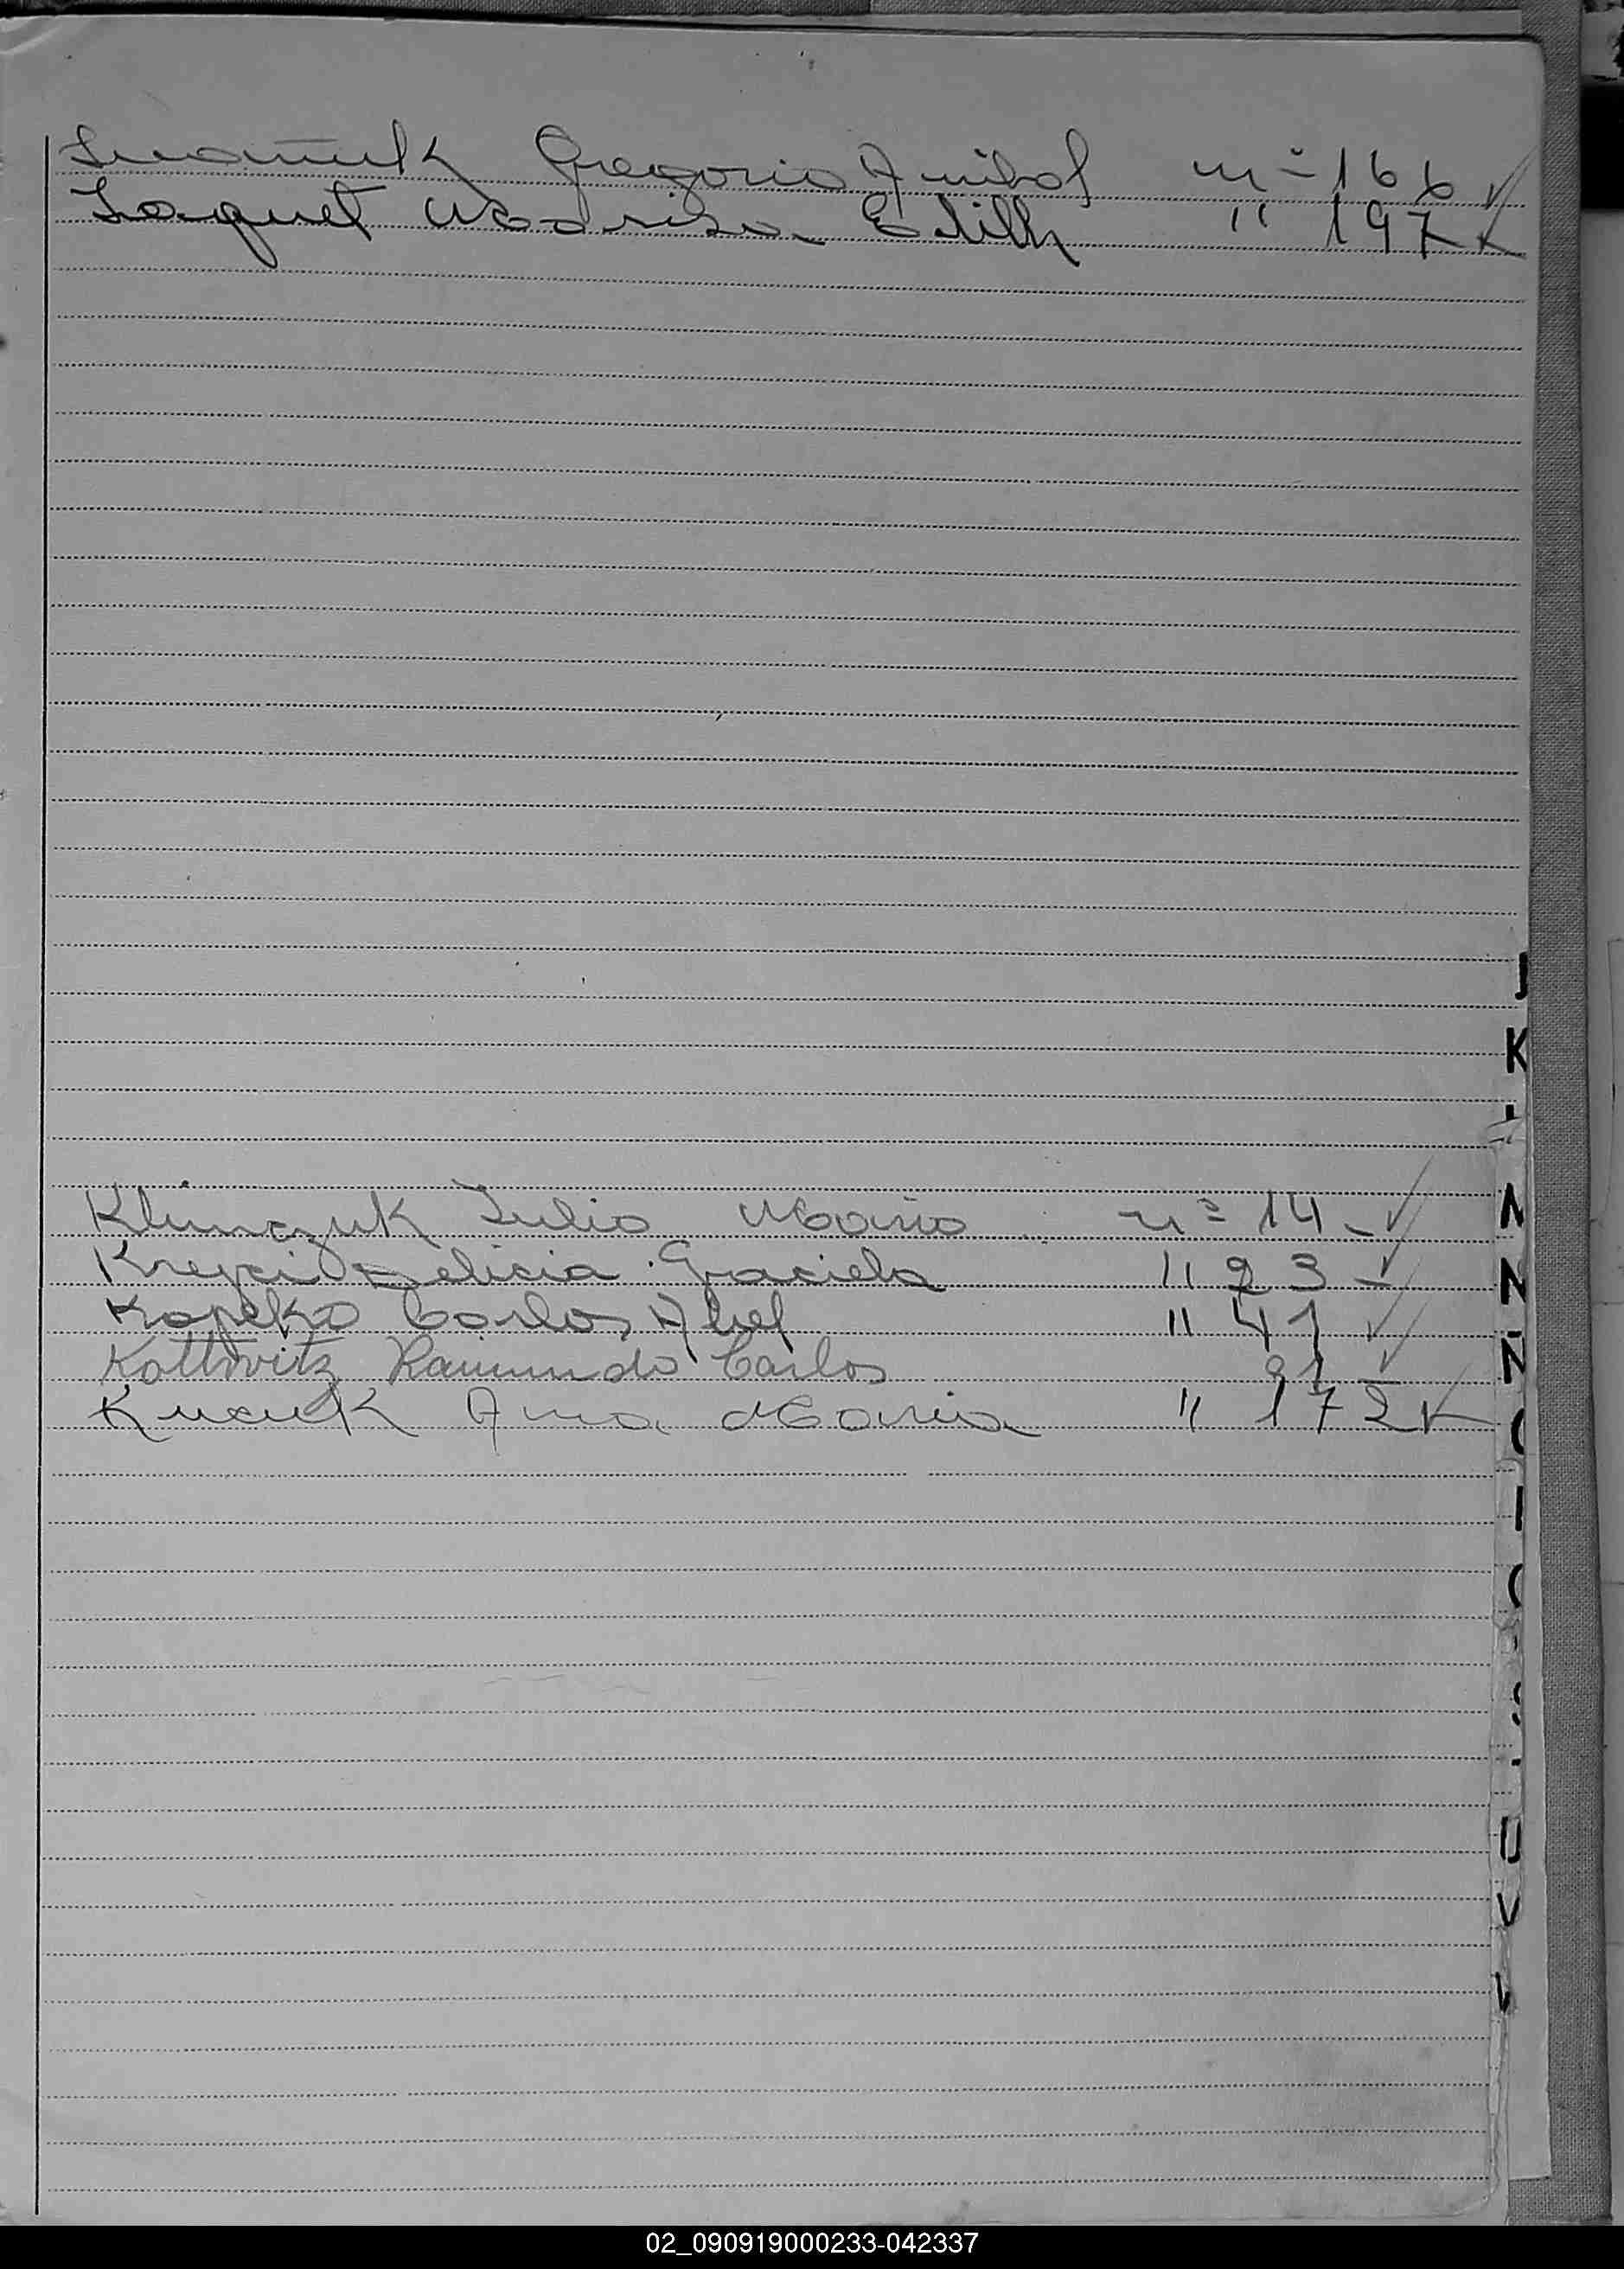 Gregorio Anibal nº 166
Marisa Edith " 197
Klimczuk Julio Mario nº 14
Krejci Felicia Graciela " 23
Kopeko Carlos Abel " 41
Kottwitz Raimundo Carlos 91
Ana Maria " 172
J
K
L
M
N
Ñ
U
V
02_090919000233-042337